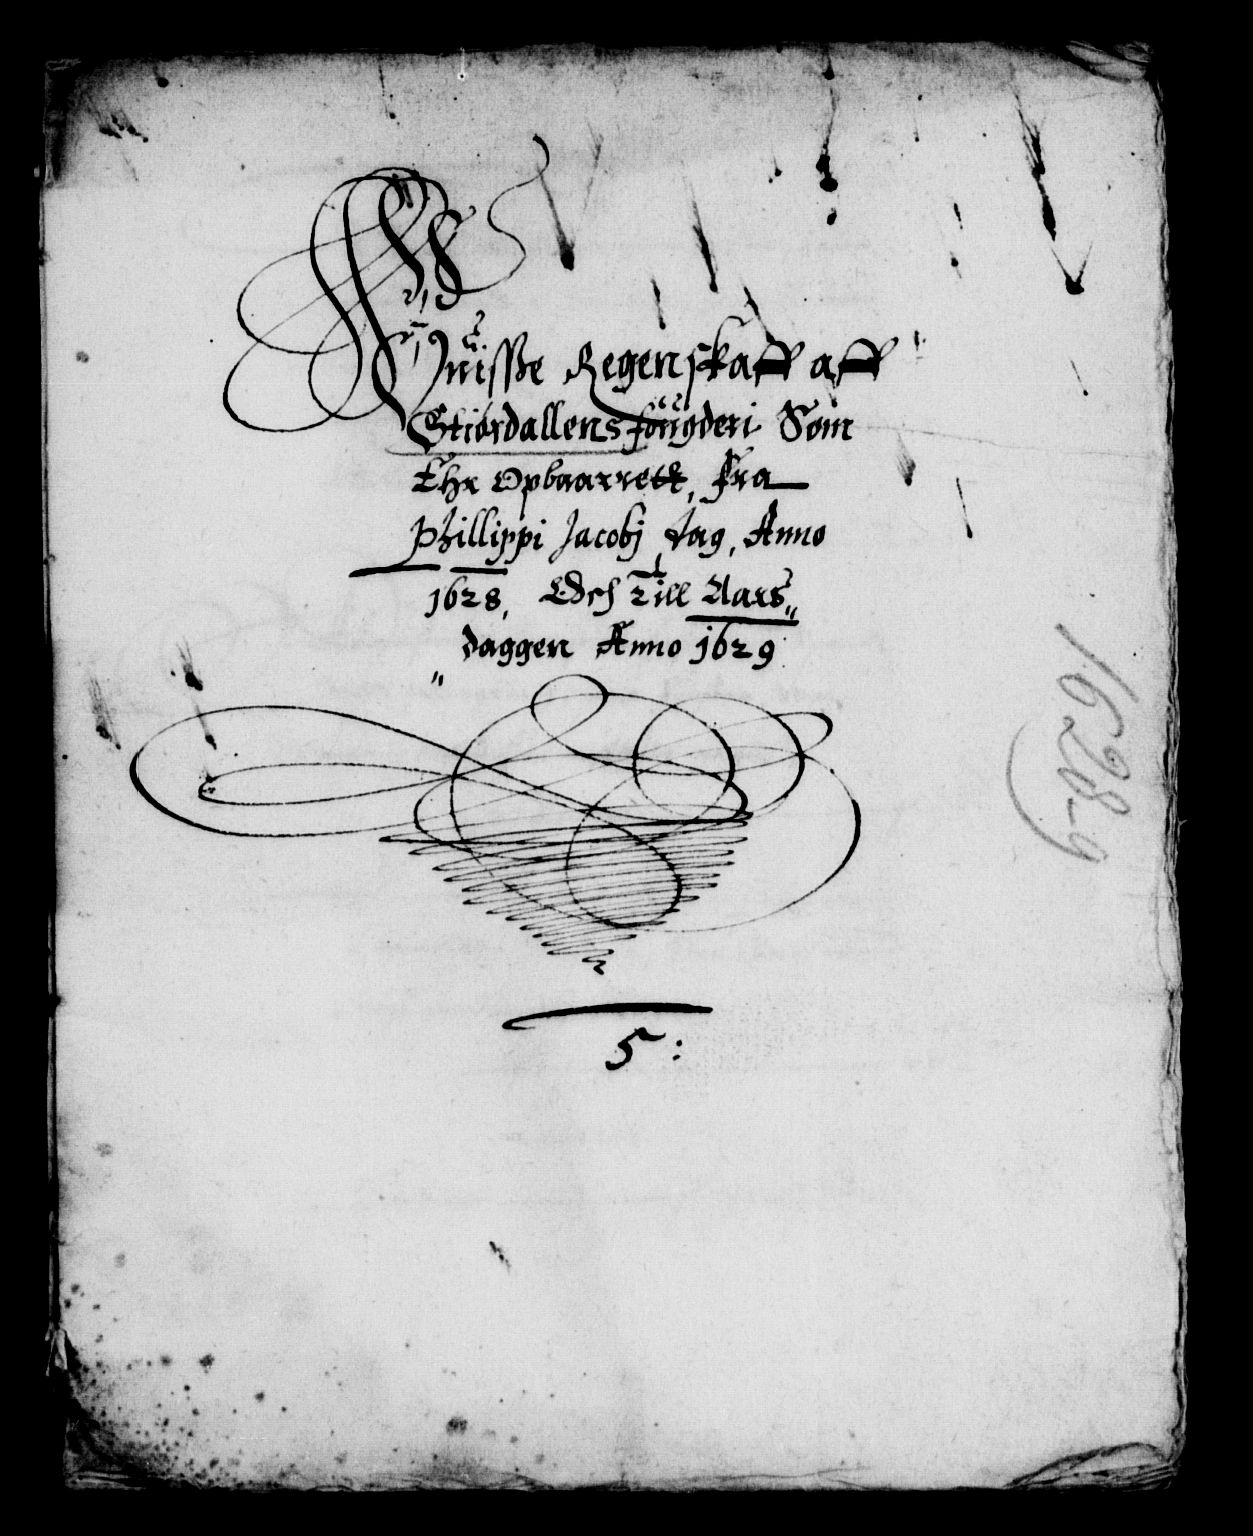 Wisße Regenskaff aff
Stiørdallens fougderi Som
Ehr Opbaarrett, fra
Phillippi Jacobj dag, Anno
1628, Och Till Aars„
daggen Anno 1629
5:
1628-9